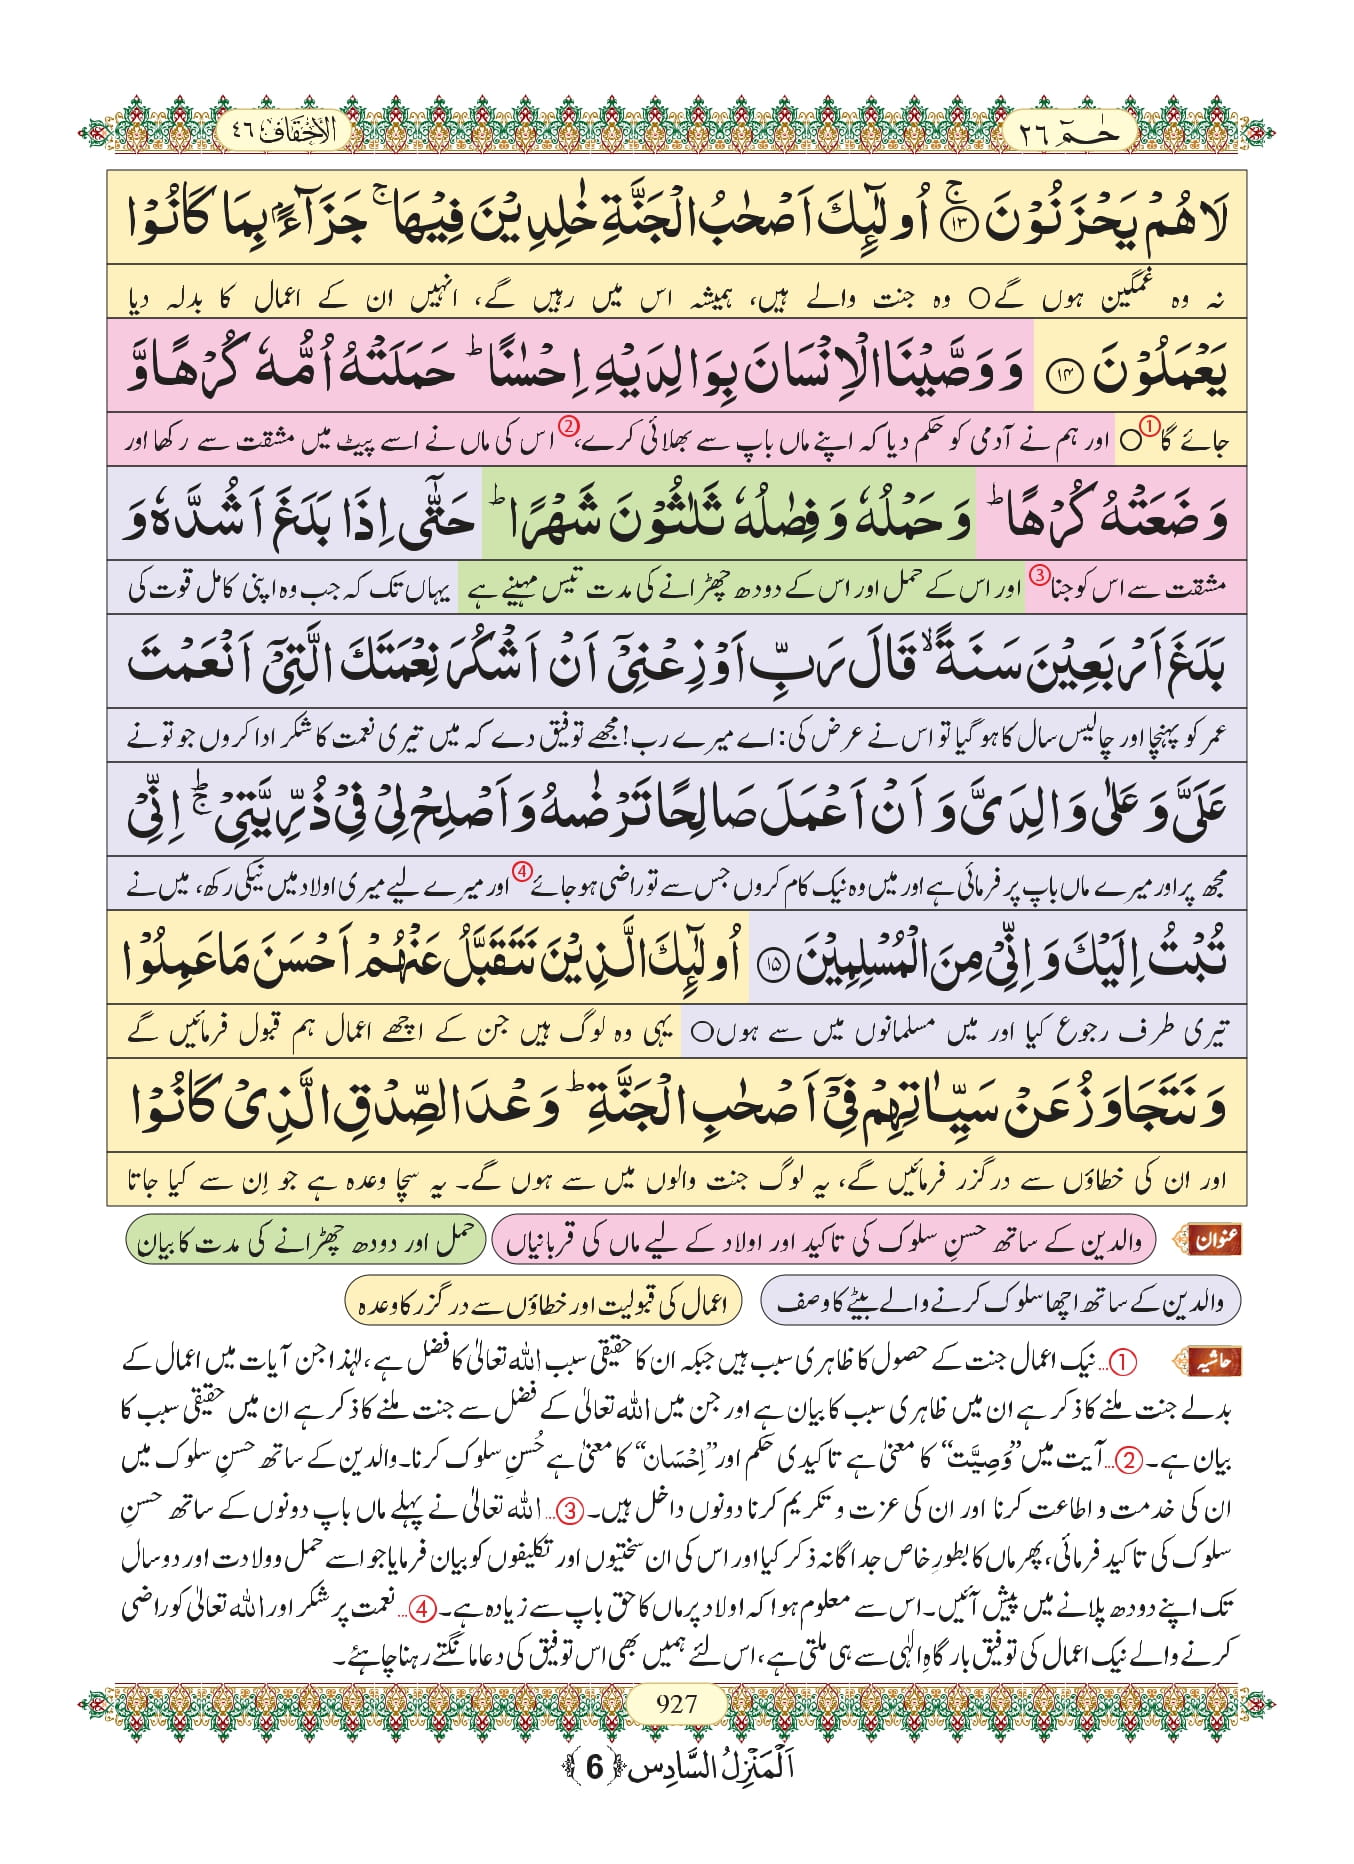 حٰمٓ ٢٦
الاحقاف ٤٦
لَا هُمْ یَحْزَنُوْنَ ۚ﴿۱۳﴾ اُولٰٓىِٕكَ اَصْحٰبُ الْجَنَّةِ خٰلِدِیْنَ فِیْهَا ۚ جَزَآءًۢ بِمَا كَانُوْا
نہ وہ غمگین ہوں گے○ وہ جنت والے ہیں، ہمیشہ اس میں رہیں گے، انہیں ان کے اعمال کا بدلہ دیا
یَعْمَلُوْنَ ﴿۱۴﴾ وَ وَصَّیْنَا الْاِنْسَانَ بِوَالِدَیْهِ اِحْسٰنًا ؕ حَمَلَتْهُ اُمُّهٗ كُرْهًا وَّ
جائے گا①○ اور ہم نے آدمی کو حکم دیا کہ اپنے ماں باپ سے بھلائی کرے،② اس کی ماں نے اسے پیٹ میں مشقت سے رکھا اور
وَضَعَتْهُ كُرْهًا ؕ وَ حَمْلُهٗ وَ فِصٰلُهٗ ثَلٰثُوْنَ شَهْرًا ؕ حَتّٰۤى اِذَا بَلَغَ اَشُدَّهٗ وَ
مشقت سے اس کو جنا③ اور اس کے حمل اور اس کے دودھ چھڑانے کی مدت تیس مہینے ہے یہاں تک کہ جب وہ اپنی کامل قوت کی
بَلَغَ اَرْبَعِیْنَ سَنَةً ۙ قَالَ رَبِّ اَوْزِعْنِیْۤ اَنْ اَشْكُرَ نِعْمَتَكَ الَّتِیْۤ اَنْعَمْتَ
عمر کو پہنچا اور چالیس سال کا ہو گیا تو اس نے عرض کی: اے میرے رب! مجھے توفیق دے کہ میں تیری نعمت کا شکر ادا کروں جو تو نے
عَلَیَّ وَ عَلٰى وَالِدَیَّ وَ اَنْ اَعْمَلَ صَالِحًا تَرْضٰىهُ وَ اَصْلِحْ لِیْ فِیْ ذُرِّیَّتِیْ ؕۚ اِنِّیْ
مجھ پر اور میرے ماں باپ پر فرمائی ہے اور میں وہ نیک کام کروں جس سے تو راضی ہو جائے④ اور میرے لیے میری اولاد میں نیکی رکھ، میں نے
تُبْتُ اِلَیْكَ وَ اِنِّیْ مِنَ الْمُسْلِمِیْنَ ﴿۱۵﴾ اُولٰٓىِٕكَ الَّذِیْنَ نَتَقَبَّلُ عَنْهُمْ اَحْسَنَ مَا عَمِلُوْا
تیری طرف رجوع کیا اور میں مسلمانوں میں سے ہوں○ یہی وہ لوگ ہیں جن کے اچھے اعمال ہم قبول فرمائیں گے
وَ نَتَجَاوَزُ عَنْ سَیِّاٰتِهِمْ فِیْۤ اَصْحٰبِ الْجَنَّةِ ؕ وَعْدَ الصِّدْقِ الَّذِیْ كَانُوْا
اور ان کی خطاؤں سے درگزر فرمائیں گے، یہ لوگ جنت والوں میں سے ہوں گے۔ یہ سچا وعدہ ہے جو اِن سے کیا جاتا
عنوان والدین کے ساتھ حسنِ سلوک کی تاکید اور اولاد کے لیے ماں کی قربانیاں حمل اور دودھ چھڑانے کی مدت کا بیان
والدین کے ساتھ اچھا سلوک کرنے والے بیٹے کا وصف اعمال کی قبولیت اور خطاؤں سے درگزر کا وعدہ
حاشیہ ①... نیک اعمال جنت کے حصول کا ظاہری سبب ہیں جبکہ ان کا حقیقی سبب اللہ تعالیٰ کا فضل ہے، لہٰذا جن آیات میں اعمال کے
بدلے جنت ملنے کا ذکر ہے ان میں ظاہری سبب کا بیان ہے اور جن میں اللہ تعالیٰ کے فضل سے جنت ملنے کا ذکر ہے ان میں حقیقی سبب کا
بیان ہے۔ ②... آیت میں ”وَصِیَّت“ کا معنیٰ ہے تاکیدی حکم اور ”اِحْسَان“ کا معنیٰ ہے حُسنِ سلوک کرنا۔ والدین کے ساتھ حسنِ سلوک میں
ان کی خدمت و اطاعت کرنا اور ان کی عزت و تکریم کرنا دونوں داخل ہیں۔ ③... اللہ تعالیٰ نے پہلے ماں باپ دونوں کے ساتھ حسنِ
سلوک کی تاکید فرمائی، پھر ماں کا بطورِ خاص جداگانہ ذکر کیا اور اس کی ان سختیوں اور تکلیفوں کو بیان فرمایا جو اسے حمل و ولادت اور دو سال
تک اپنے دودھ پلانے میں پیش آئیں۔ اس سے معلوم ہوا کہ اولاد پر ماں کا حق باپ سے زیادہ ہے۔ ④... نعمت پر شکر اور اللہ تعالیٰ کو راضی
کرنے والے نیک اعمال کی توفیق بارگاہِ الٰہی سے ہی ملتی ہے، اس لئے ہمیں بھی اس توفیق کی دعا مانگتے رہنا چاہئے۔
927
اَلْمَنْزِلُ السَّادِس ﴿6﴾